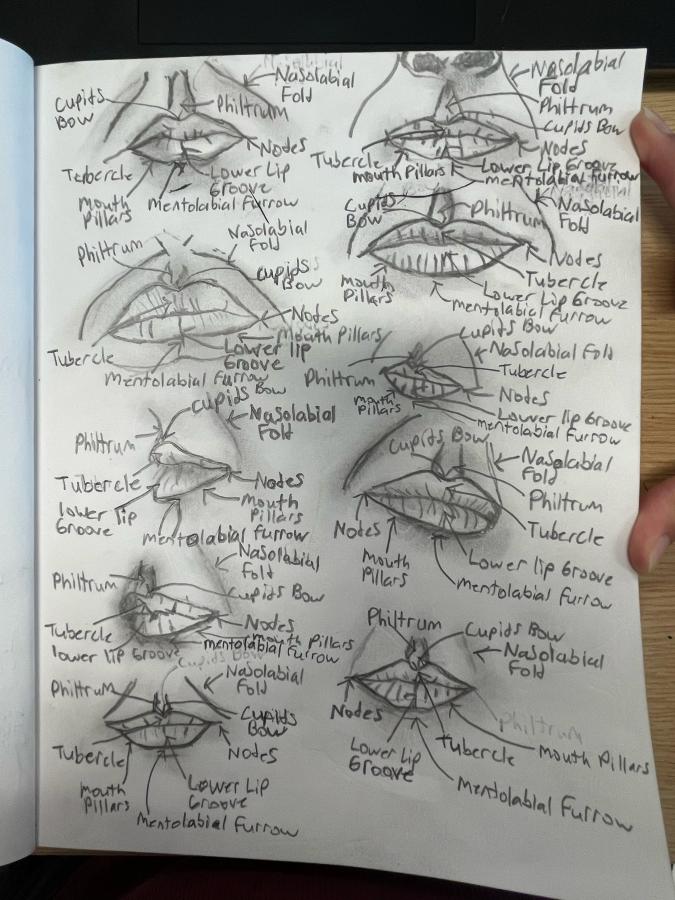 Nasolabial
Fold
Cupids
Bow
Philtrum
Nodes
Tubercle
Lower Lip
Groove
Mouth
Pillars
Mentolabial Furrow
Philtrum
Nasolabial
Fold
Cupids
Bow
Nodes
Mouth Pillars
Tubercle
Lower lip
Groove
Mentolabial Furrow
Cupids Bow
Nasolabial
Fold
Philtrum
Tubercle
Nodes
Mouth
Pillars
lower lip
Groove
Mentolabial furrow
Nasolabial
Fold
Philtrum
Cupids Bow
Tubercle
Nodes
Mouth Pillars
lower lip Groove
mentolabial furrow
Cupids Bow
Nasolabial
Fold
Philtrum
Cupids
Bow
Tubercle
Nodes
mouth
Pillars
Lower Lip
Groove
Mentolabial Furrow
Nasolabial
Fold
Philtrum
Cupids Bow
Nodes
Tubercle
mouth Pillars
Lower Lip Groove
mentolabial furrow
Cupids
Bow
Philtrum
Nasolabial
Fold
Nodes
Tubercle
mouth
Pillars
Lower Lip Groove
mentolabial Furrow
Cupids Bow
Nasolabial Fold
Tubercle
Philtrum
Nodes
mouth
Pillars
Lower lip Groove
mentolabial Furrow
Cupids Bow
Nasolabial
Fold
Philtrum
Tubercle
Nodes
Mouth
Pillars
Lower lip Groove
mentolabial Furrow
Philtrum
Cupids Bow
Nasolabial
Fold
Nodes
Philtrum
Lower Lip
Groove
Tubercle
Mouth Pillars
Mentolabial Furrow